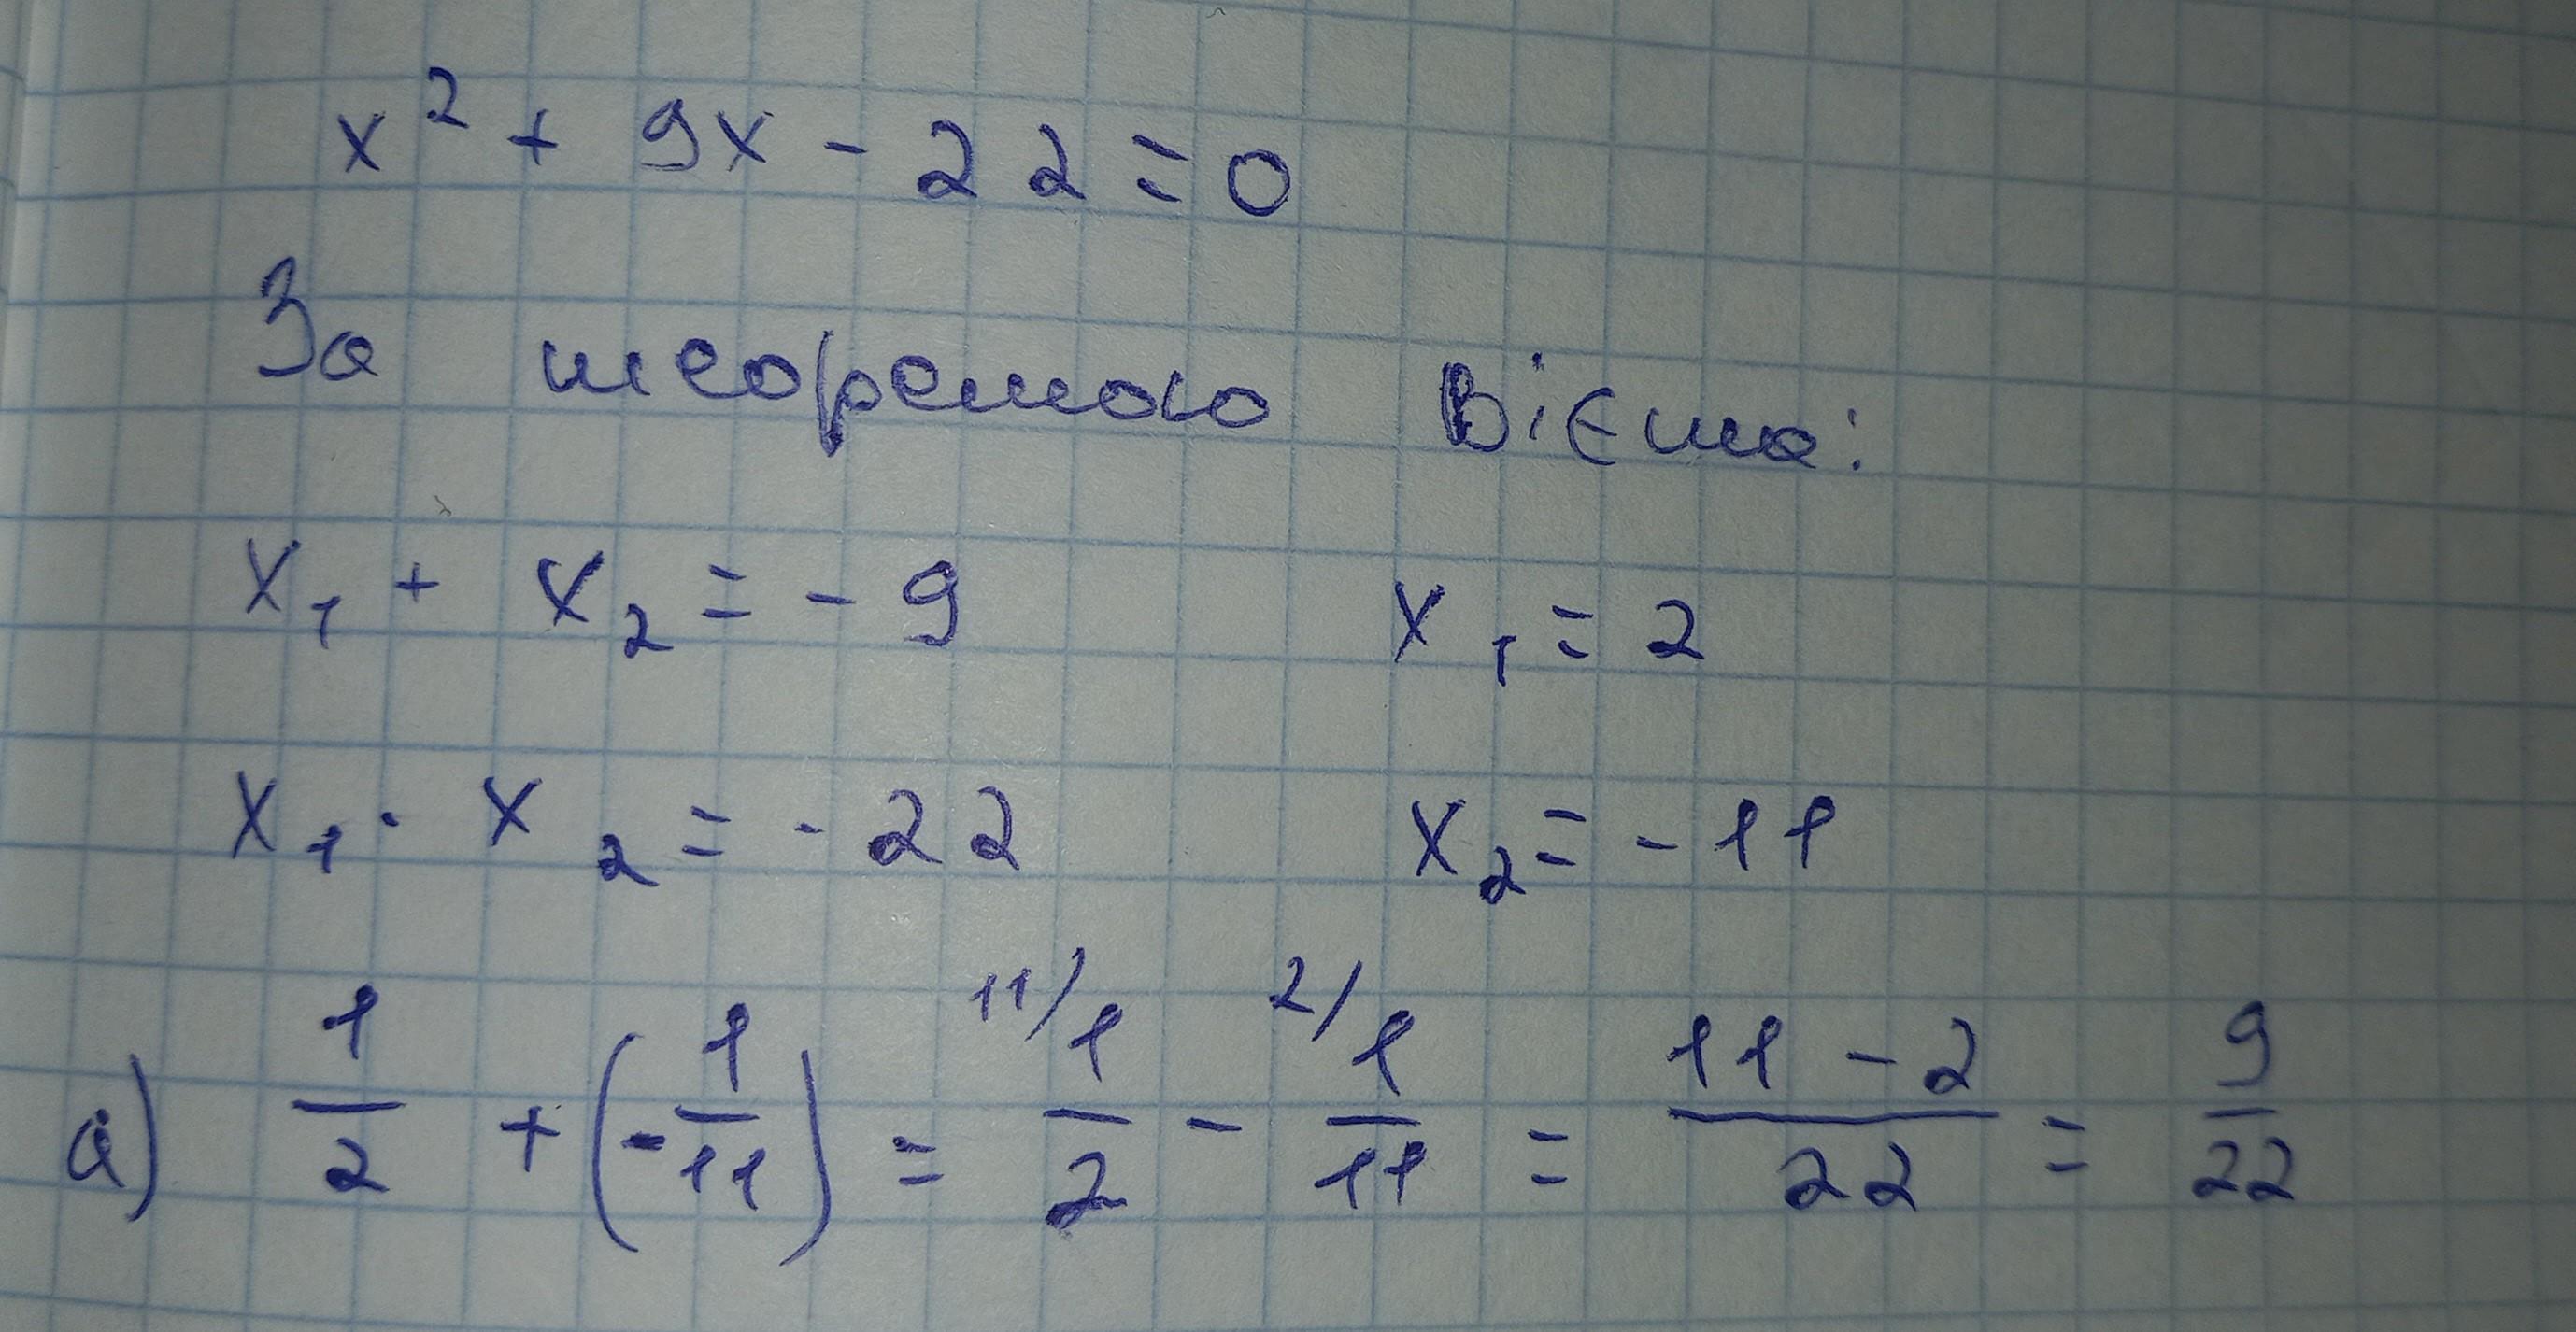 x² + 9x - 22 = 0
За теоремою Вієта:
x₁ + x₂ = - 9    x₁ = 2
x₁ · x₂ = - 22    x₂ = - 11
а) 1/2 + (- 1/11) = ¹¹/ 1/2 - ²/ 1/11 = (11 - 2)/22 = 9/22